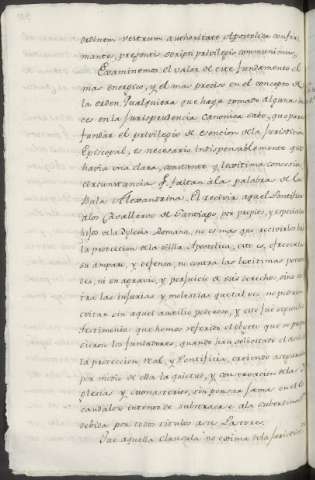 ordinem vestrum authoritate Apostolica confir
mante, presentis scripti privilegio communimus,
Examinemos el valor de este fundamento el
mas energico, y el mas preciso en el concepto de
la orden. Qualquiera que haya tomado algunas lu
ces en la Jurisprudencia Canonica sabe, que para
fundar el privilegio de esencion de la Jurisdicion
Episcopal, es necesario indispensablemente que
haya una clara, constante y legitima concesion
circunstancia q.e falta a la palabra de la
Bula Alexandrina. El recivir aquel Pontifice
alos Cavalleros de Santiago, por propios, y especiales
hijos dela Yglesia Romana, no es mas que acivirlos bajo
la proteccion dela Silla Apostolica, esto es, ofrecerles
su amparo, y defensa, no contra las legitimas potesta
des, ni en agravio, y perjuicio de sus derechos, sino con
tra las injurias, y molestias que tal vez no podrian
evitar sin aquel auxilio poderoso, y este fue segun los
testimonios que hemos referido el objeto que se propu
sieron los fundadores, quando han solicitado el asilo de
la proteccion Real, y Pontificia, creiendo asegurar
por medio de ella la quietud, y conservacion delas
Yglesias y Monasterios, sin pensar jamas en el es
candaloso extremo de subtraerse ala subordinacion
debida por todos titulos a su Pastor.
Que aquella clausula no exima dela Jurisdicion